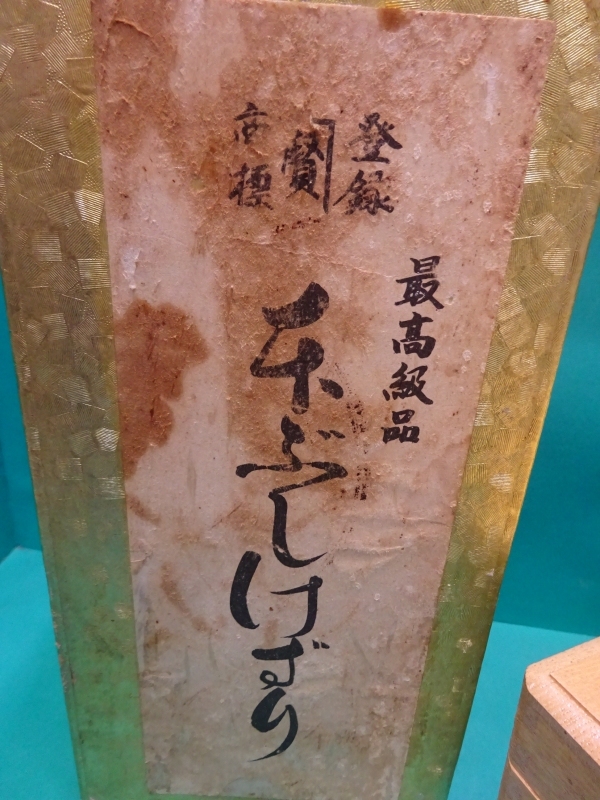 登録
賢
商標
最高級品
本ぶしけずり